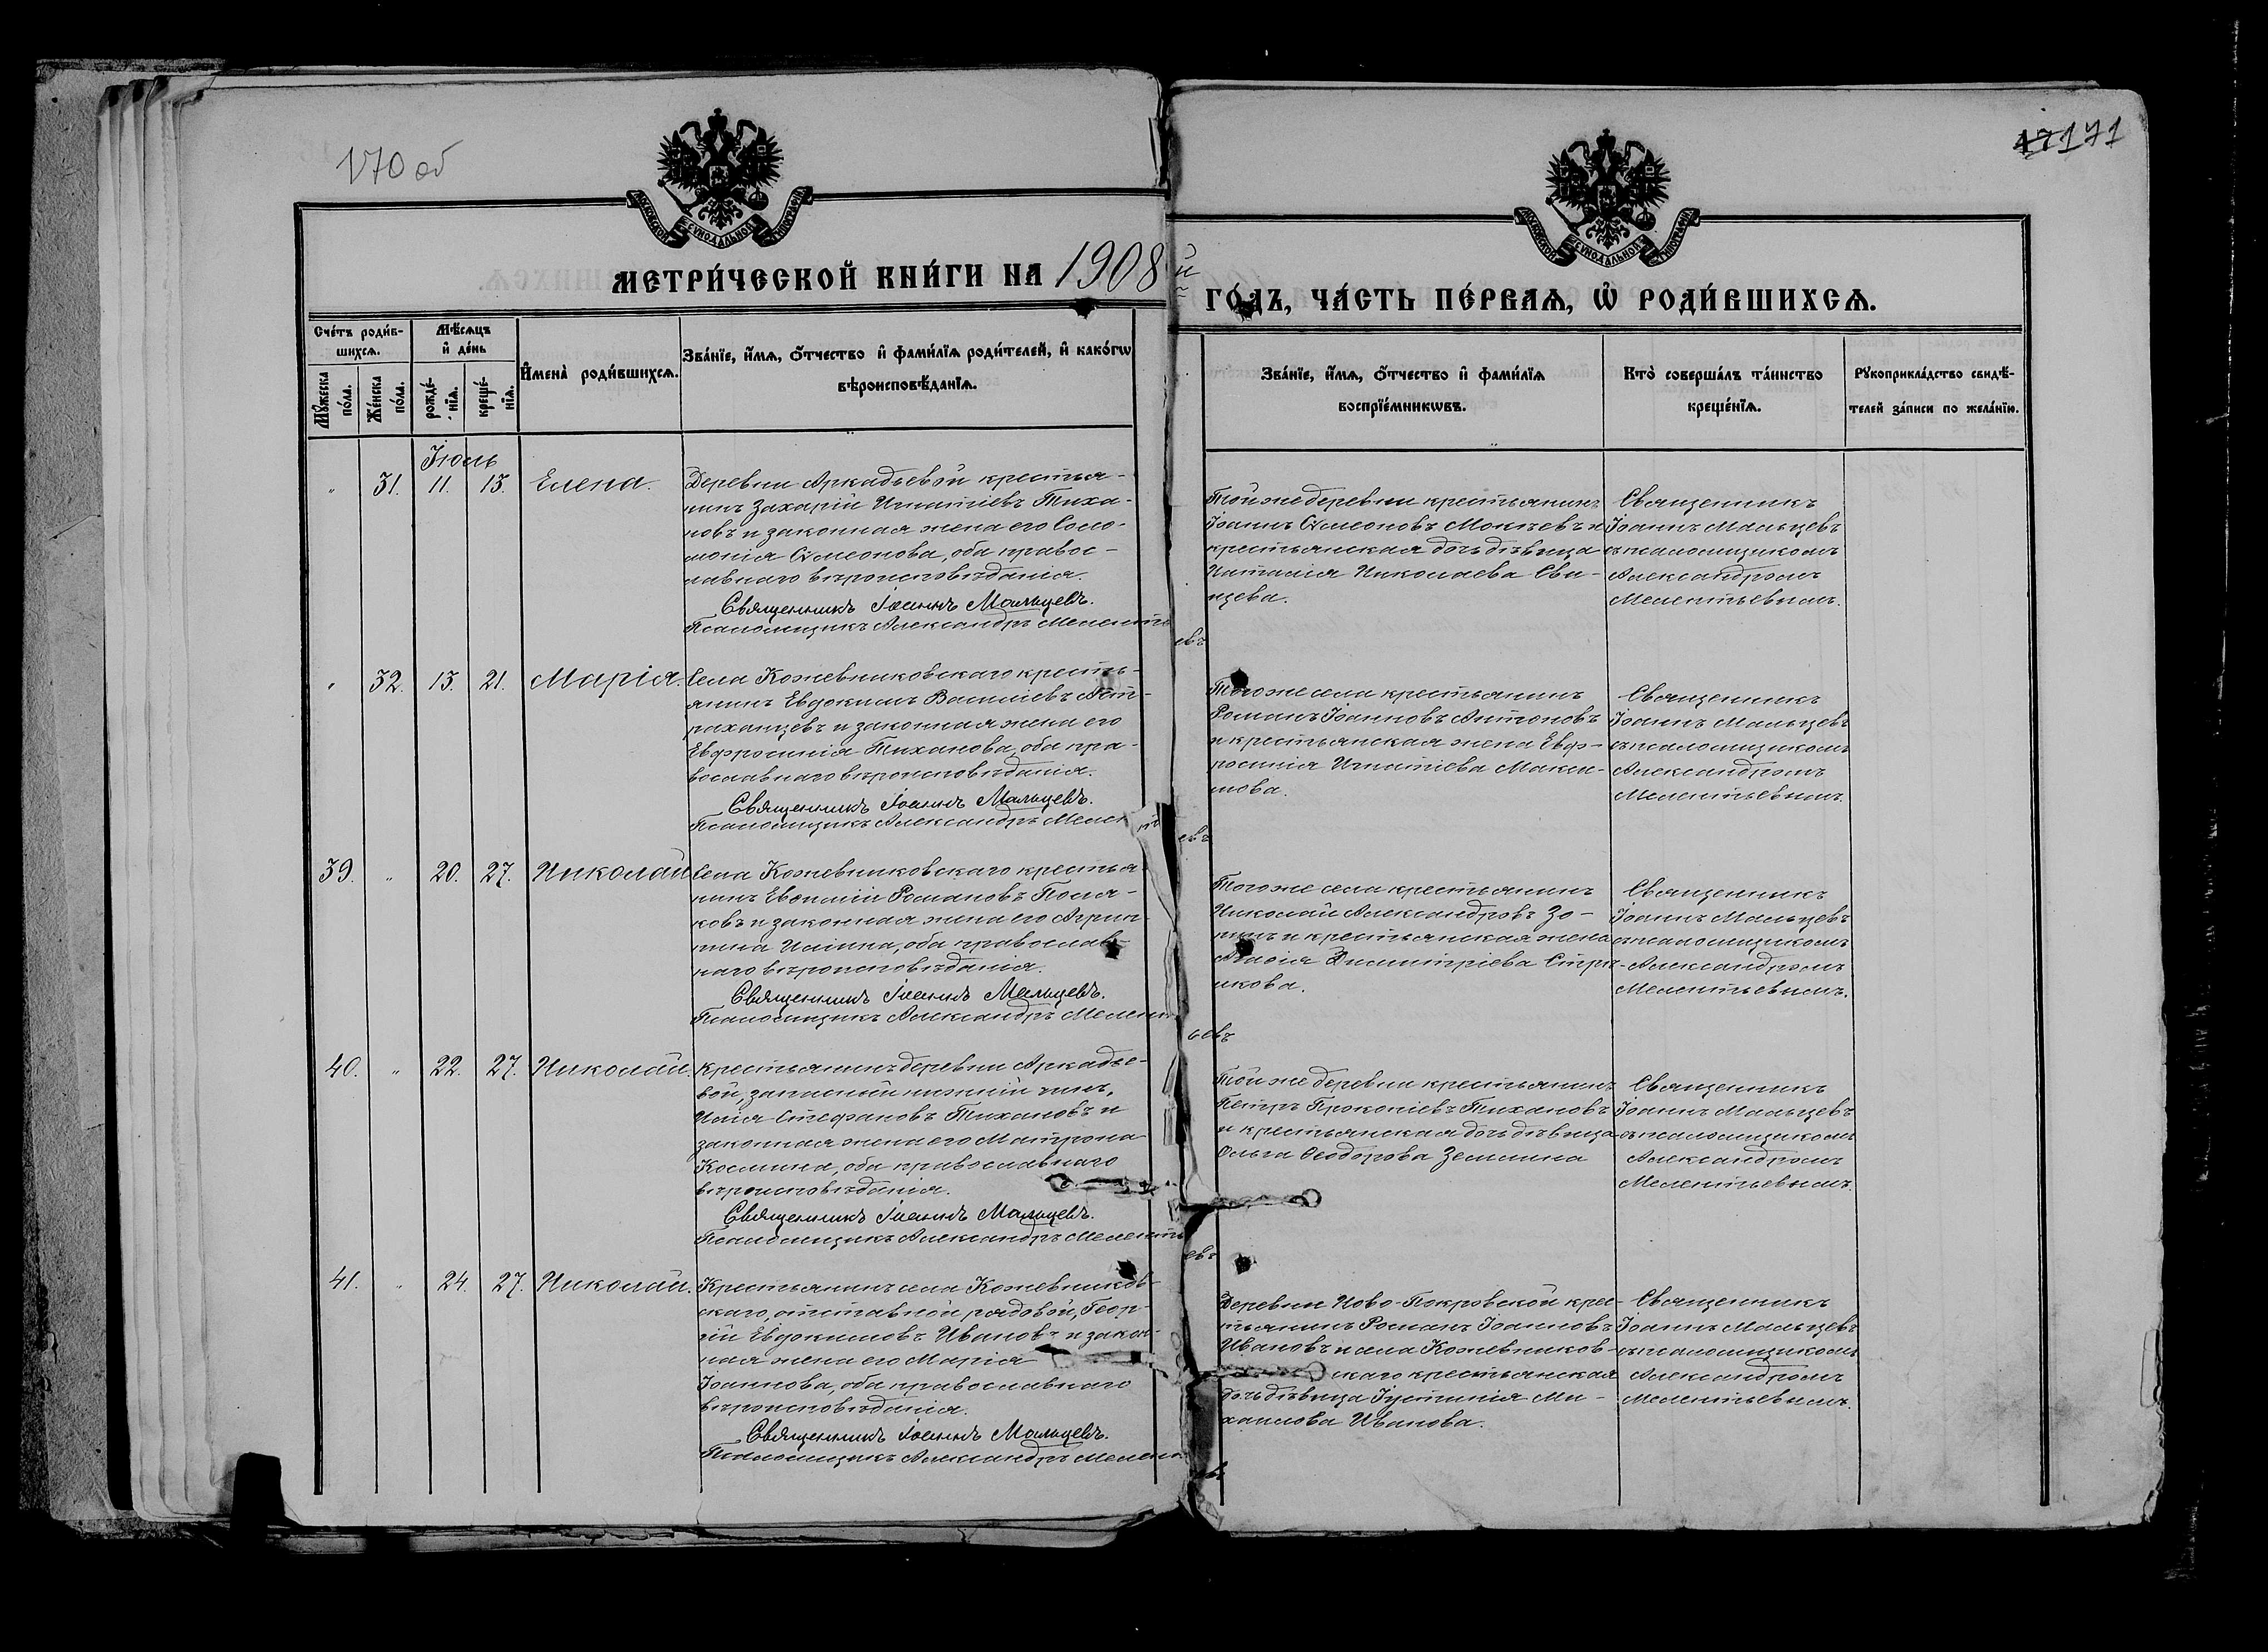 170 об
17 171
МОСКОВСКОЙ СУНОДАЛЬНОЙ ТИПОГРАФІИ
МОСКОВСКОЙ СУНОДАЛЬНОЙ ТИПОГРАФІИ
МЕТРИ́ЧЕСКОЙ КНИ́ГИ НА 1908 й
ГО́ДЪ, ЧА́СТЬ ПЕ́РВАѦ, Ѡ҆ РОДИ́ВШИХСѦ.
Сче́тъ роди́в-
шихсѧ.
Мꙋ́жеска по́ла.
Же́нска по́ла.
Мѣ́сѧцъ
и҆ де́нь
рожде́-
нїѧ.
креще́-
нїѧ.
И҆мена̀ роди́вшихсѧ.
Зва́нїе, и҆́мѧ, ѻ҆́тчество и҆ фами́лїѧ роди́телей, и҆ како́гѡ
вѣроисповѣ́данїѧ.
Зва́нїе, и҆́мѧ, ѻ҆́тчество и҆ фами́лїѧ
воспрїе́мникѡвъ.
Кто̀ соверша́лъ та́инство
креще́нїѧ.
Рꙋкоприкла́дство свидѣ́-
телей за́писи по жела́нїю.
Іюль
" 31. 11. 13. Елена.
Деревни Аркадьевой крестья-
нинъ Захарій Игнатіевъ Тиха-
новъ и законная жена его Соло-
монія Сѵмеонова, оба правос-
лавнаго вѣроисповѣданія.
Священникъ Іоаннъ Мальцевъ.
Псаломщикъ Александръ Мелентьевъ
Той же деревни крестьянинъ
Іоаннъ Сѵмеоновъ Мокѣевъ и
крестьянская дочь дѣвица
Наталія Николаева Сви-
щева.
Священникъ
Іоаннъ Мальцевъ
съ псаломщикомъ
Александромъ
Мелентьевымъ.
" 32. 13. 21. Марія.
Села Кожевниковскаго кресть-
янинъ Евдокимъ Василіевъ Аст-
раханцевъ и законная жена его
Евфросинія Тиханова, оба пра-
вославнаго вѣроисповѣданія.
Священникъ Іоаннъ Мальцевъ.
Псаломщикъ Александръ Мелентьевъ
Того же села крестьянинъ
Романъ Іоанновъ Антоновъ
и крестьянская жена Евф-
росинія Игнатіева Макси-
мова.
Священникъ
Іоаннъ Мальцевъ
съ псаломщикомъ
Александромъ
Мелентьевымъ.
39. " 20. 27. Николай
Села Кожевниковскаго крестья
нинъ Евфимій Романовъ Поля-
ковъ и законная жена его Агрип-
пина Иліина, оба православ-
наго вѣроисповѣданія.
Священникъ Іоаннъ Мальцевъ.
Псаломщикъ Александръ Мелентьевъ
Того же села крестьянинъ
Николай Александровъ Зо-
нинъ и крестьянская жена
Димитріева
икова.
Священникъ
Іоаннъ Мальцевъ
съ псаломщикомъ
Александромъ
Мелентьевымъ.
40. " 22. 27. Николай.
Крестьянинъ деревни Аркадье-
вой, запасный нижній чинъ,
Илія Стефановъ Тихановъ и
законная жена его Матрона
Космина, оба православнаго
вѣроисповѣданія.
Священникъ Іоаннъ Мальцевъ.
Псаломщикъ Александръ Мелентьевъ
Той же деревни крестьянинъ
Петръ Прокопіевъ Тихановъ
и крестьянская дочь дѣвица
Ольга Ѳеодорова Земзина
Священникъ
Іоаннъ Мальцевъ
съ псаломщикомъ
Александромъ
Мелентьевымъ.
41. " 24. 27. Николай.
Крестьянинъ села Кожевников-
скаго, отставной рядовой, Геор-
гій Евдокимовъ Ивановъ и закон-
ная жена его Марія
Іоаннова, оба православнаго
вѣроисповѣданія.
Священникъ Іоаннъ Мальцевъ.
Псаломщикъ Александръ Мелентьевъ
Деревни Ново-Покровской крес-
тьянинъ Романъ Іоанновъ
Ивановъ и села Кожевников-
скаго крестьянская
дочь дѣвица Іустинія Ми-
хаилова Иванова.
Священникъ
Іоаннъ Мальцевъ
съ псаломщикомъ
Александромъ
Мелентьевымъ.